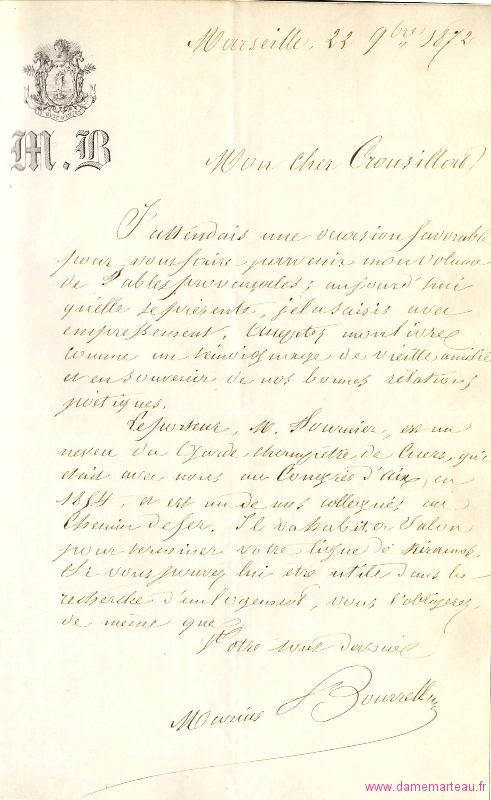 Marseille, 22 9bre 1872
M.B
Mon cher Crousillat
J'attendais une occasion favorable
pour vous faire parvenir mon volume
de Fables provençales ; aujourd'hui
qu'elle se présente, je la saisis avec
empressement. Acceptez mon livre
comme un témoignage de vieille amitié
et en souvenir de nos bonnes relations
poétiques.
Le porteur, M. Fournier, est un
neveu du Garde champêtre de Cuers, qui
était avec nous au Congrès d'Aix, en
1854, et est un de nos collègues au
Chemin de fer. Il va habiter Salon
pour terminer votre ligne de
Si vous pouvez lui être utile dans la
recherche d'un logement, vous l'obligerez
de même que
Votre tout dévoué
Marius Bourrelly
www.damemarteau.fr